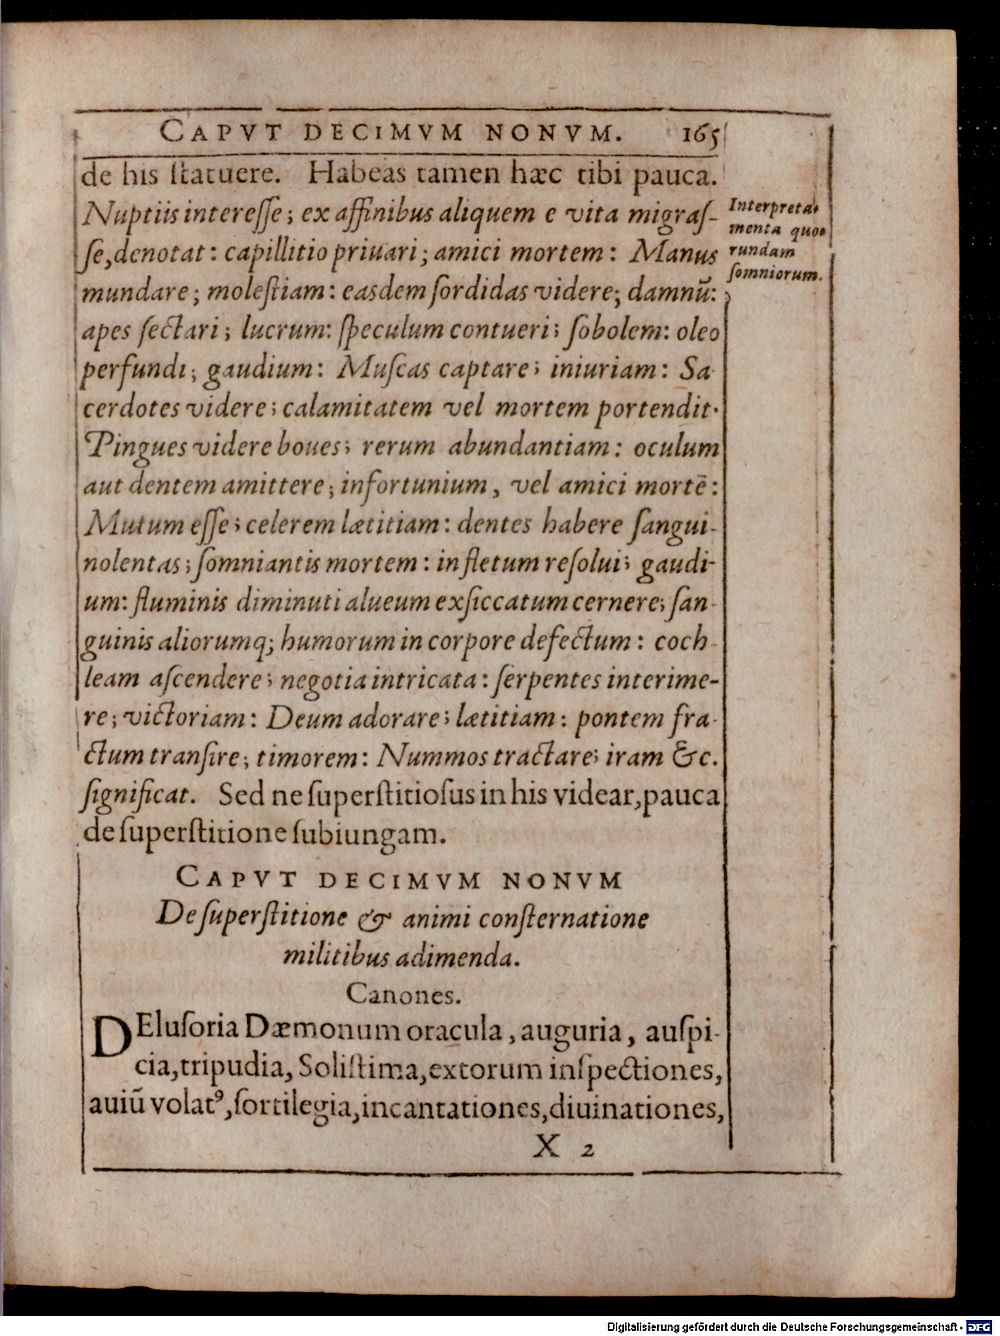 CAPVT DECIMVM NONVM. 165
de his ſtatuere. Habeas tamen hæc tibi pauca.
Nuptiis intereſſe; ex affinibus aliquem e vita migraſ-
ſe, denotat: capillitio priuari; amici mortem: Manus
mundare; moleſtiam: easdem ſordidas videre; damnū:
apes ſectari; lucrum: ſpeculum contueri; ſobolem: oleo
perfundi; gaudium: Muſcas captare; iniuriam: Sa-
cerdotes videre; calamitatem vel mortem portendit.
Pingues videre boues; rerum abundantiam: oculum
aut dentem amittere; infortunium, vel amici mortē:
Mutum eſſe; celerem lætitiam: dentes habere ſangui-
nolentas; ſomniantis mortem: in fletum reſolui; gaudi-
um: fluminis diminuti alueum exſiccatum cernere; ſan-
guinis aliorumq; humorum in corpore defectum: coch-
leam aſcendere; negotia intricata: ſerpentes interime-
re; victoriam: Deum adorare; lætitiam: pontem fra-
ctum tranſire; timorem: Nummos tractare; iram &c.
ſignificat. Sed ne ſuperſtitioſus in his videar, pauca
de ſuperſtitione ſubiungam.
Interpreta-
menta quo-
rundam
ſomniorum.
CAPVT DECIMVM NONVM
De ſuperſtitione & animi conſternatione
militibus adimenda.
Canones.
DEluſoria Dæmonum oracula, auguria, auſpi-
cia, tripudia, Soliſtima, extorum inſpectiones,
auiū volatꝰ, ſortilegia, incantationes, diuinationes,
X 2
Digitalisierung gefördert durch die Deutsche Forschungsgemeinschaft - DFG